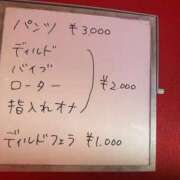 パンツ ¥3000
ディルド
バイブ
ローター ¥2,000
指入れオナ
ディルドフェラ ¥1,000